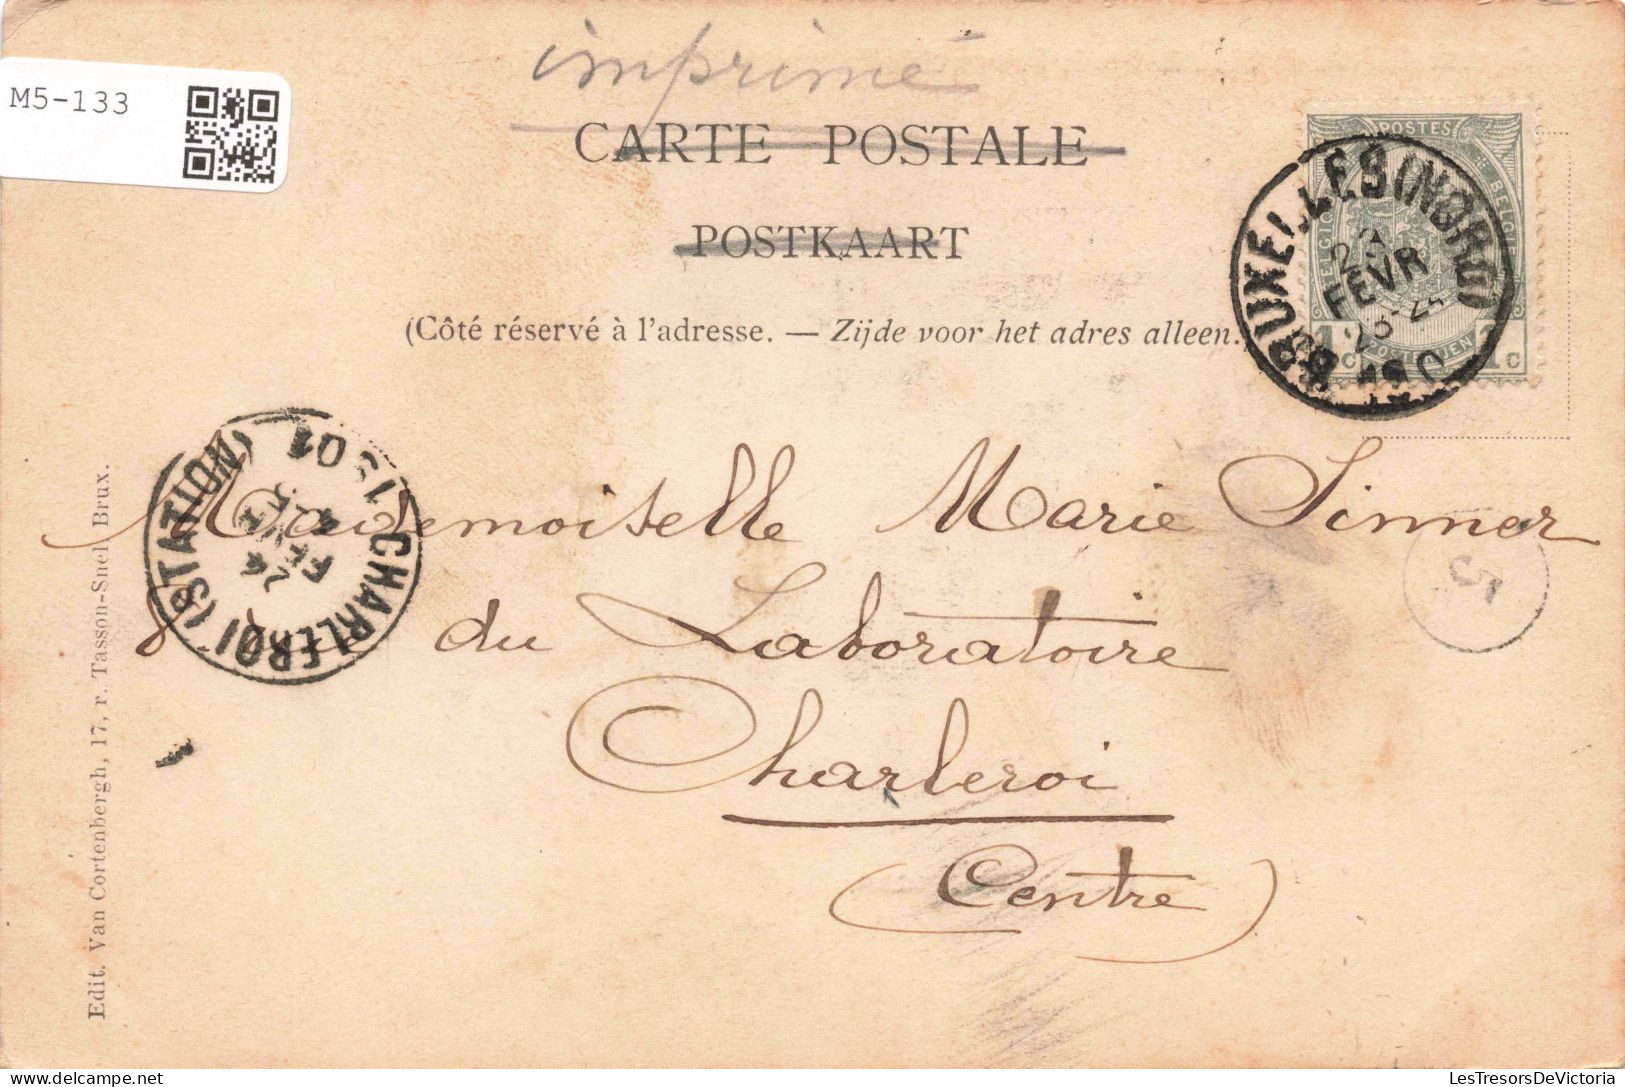 imprimé
M5-133
CARTE POSTALE
POSTKAART
(Côté réservé à l'adresse. — Zijde voor het adres alleen.
POSTES
BELGIQUE
BELGIE
1 c 1 c
BRUXELLES (NORD)
FEVR
CHARLEROI (STATION)
24
FEVR
1901
Mademoiselle Marie Sinner
8 du Laboratoire
Charleroi
(Centre)
5
Edit. Van Cortenbergh, 17, r. Tasson-Snel Brux.
LesTresorsDeVictoria